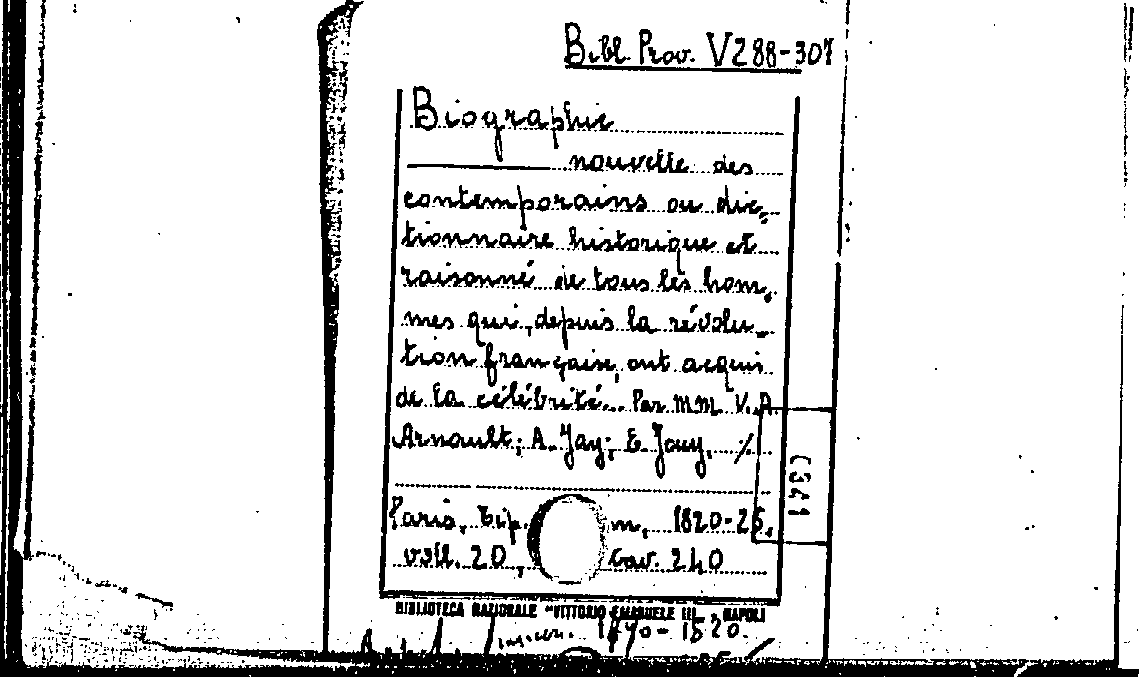 Bibl. Prov. V288-307
Biographie
nouvelle des
contemporains ou dic-
tionnaire historique et
raisonné de tous les hom-
mes qui, depuis la révolu-
tion française, ont acquis
de la célébrité... Par MM. V. A
Arnault; A. Jay; E. Jouy, %
Paris, Tip. m, 1820-25,
voll. 20, Cav. 240
BIBLIOTECA NAZIONALE "VITTORIO EMANUELE III" - NAPOLI
1820.